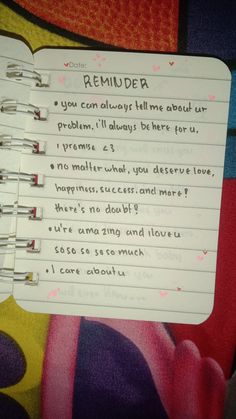 Date:
REMINDER
• you can always tell me about ur
problem, i'll always be here for u.
i promise <3
• no matter what, you deserve love,
happiness, success, and more!
there's no doubt!
• u're amazing and i love u
soso so so so much
• I care about u